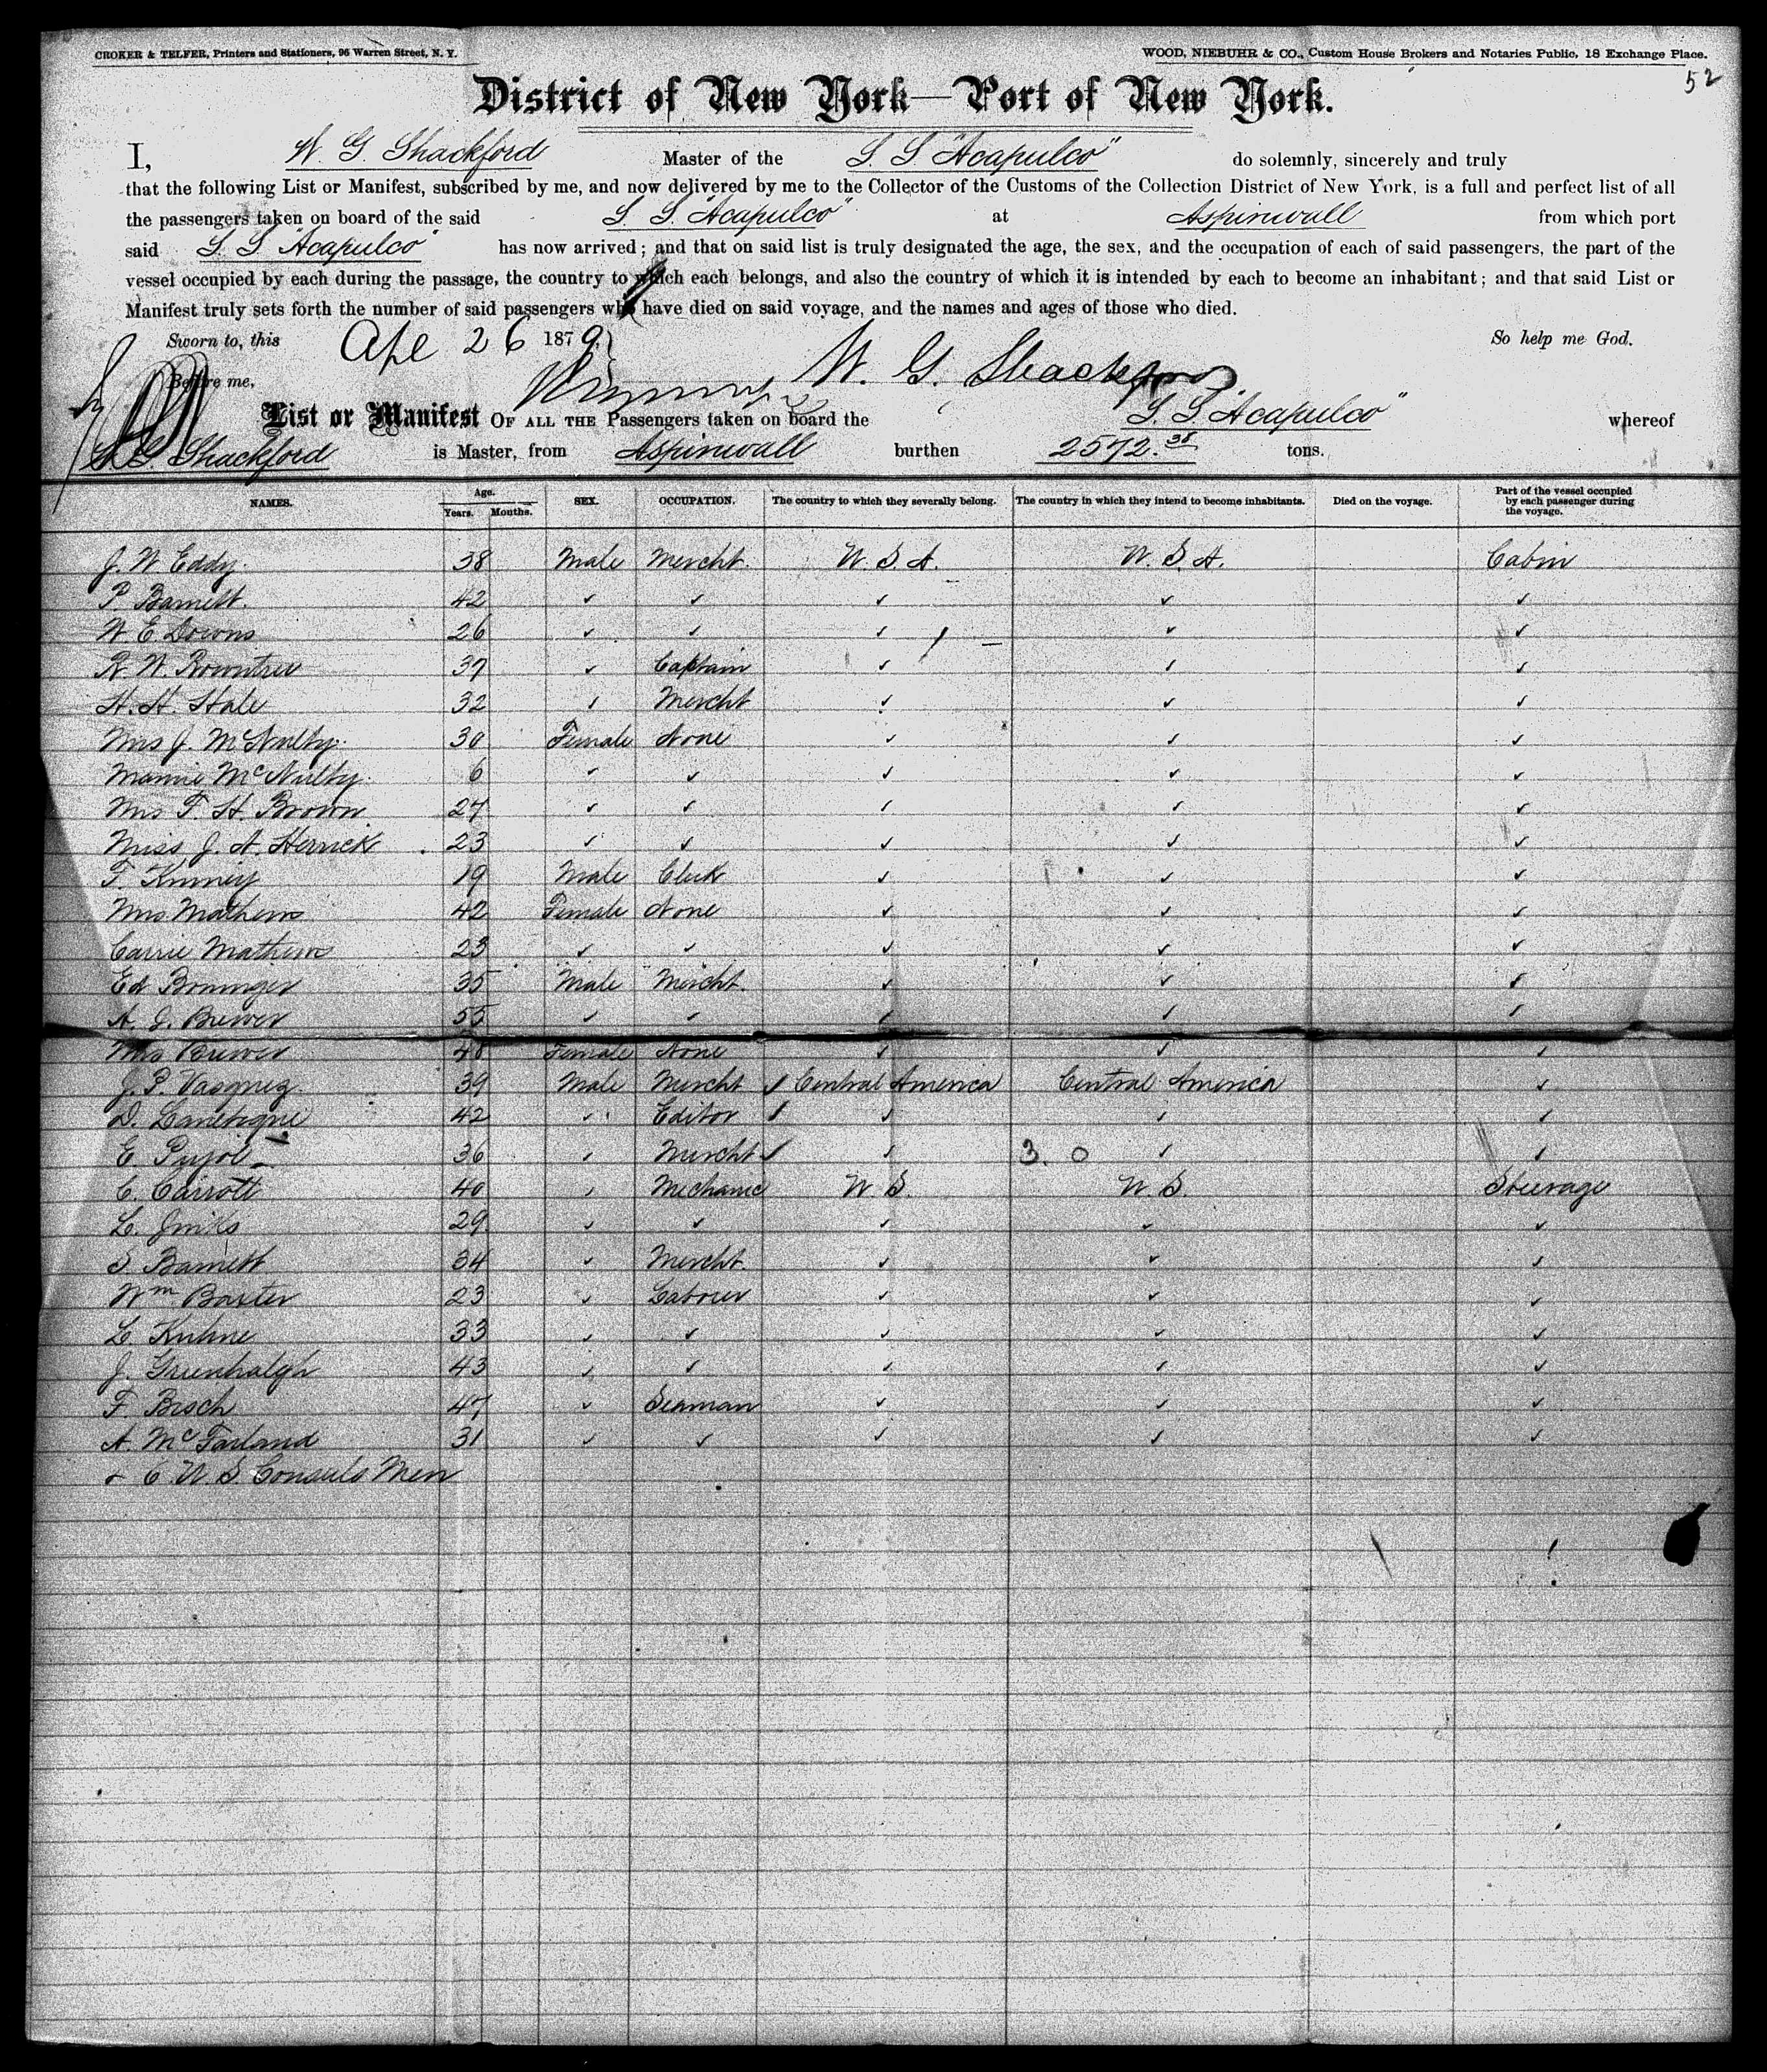 CROKER & TELFER, Printers and Stationers, 96 Warren Street, N. Y. WOOD, NIEBUHR & CO., Custom House Brokers and Notaries Public, 18 Exchange Place.
52
District of New York—Port of New York.
I, W. G. Shackford Master of the S. S. "Acapulco" do solemnly, sincerely and truly
that the following List or Manifest, subscribed by me, and now delivered by me to the Collector of the Customs of the Collection District of New York, is a full and perfect list of all
the passengers taken on board of the said S. S. "Acapulco" at Aspinwall from which port
said S. S. "Acapulco" has now arrived; and that on said list is truly designated the age, the sex, and the occupation of each of said passengers, the part of the
vessel occupied by each during the passage, the country to which each belongs, and also the country of which it is intended by each to become an inhabitant; and that said List or
Manifest truly sets forth the number of said passengers who have died on said voyage, and the names and ages of those who died.
Sworn to, this Apl 26 1879. So help me God.
Before me, W. G. Shackford
List or Manifest OF ALL THE Passengers taken on board the S. S. "Acapulco" whereof
W. G. Shackford is Master, from Aspinwall burthen 2572.38 tons.
NAMES. Age. Years. Months. SEX. OCCUPATION. The country to which they severally belong. The country in which they intend to become inhabitants. Died on the voyage. Part of the vessel occupied by each passenger during the voyage.
J. W. Eddy. 38 Male Mercht. U. S. A. U. S. A. Cabin
P. Barnett. 42 ✓ ✓ ✓ ✓ ✓
W. E. Downs 26 ✓ ✓ ✓ ✓ ✓
R. W. Rowntree 37 ✓ Captain ✓ ✓ ✓
H. H. Hale 32 ✓ Mercht ✓ ✓ ✓
Mrs J. McNulty. 30 Female None ✓ ✓ ✓
Mamie McNulty. 6 ✓ ✓ ✓ ✓ ✓
Mrs F. H. Brown. 27 ✓ ✓ ✓ ✓ ✓
Miss J. A. Herrick. 23 ✓ ✓ ✓ ✓ ✓
F. Kinney 19 Male Clerk ✓ ✓ ✓
Mrs Mathews 42 Female None ✓ ✓ ✓
Carrie Mathews 23 ✓ ✓ ✓ ✓ ✓
Ed Bronnger 35 Male Mercht. ✓ ✓ ✓
A. J. Brewer 55 ✓ ✓ ✓ ✓ ✓
Mrs Brewer 48 Female None ✓ ✓ ✓
J. P. Vasquez. 39 Male Mercht ✓ Central America Central America ✓
D. 42 ✓ Editor ✓ ✓ ✓ ✓
E. Pujol 36 ✓ Mercht ✓ ✓ 3. 0 ✓ ✓
C. Carroll 40 ✓ Mechanic U. S. U. S. Steerage
L. Jenks 29 ✓ ✓ ✓ ✓ ✓
S. Barnett 34 ✓ Mercht. ✓ ✓ ✓
Wm Baxter 23 ✓ Laborer ✓ ✓ ✓
L. Kuhne 33 ✓ ✓ ✓ ✓ ✓
J. Greenhalgh 43 ✓ ✓ ✓ ✓ ✓
F. Besch 47 ✓ Seaman ✓ ✓ ✓
A. McFarland 31 ✓ ✓ ✓ ✓ ✓
6 U. S. Consuls Men